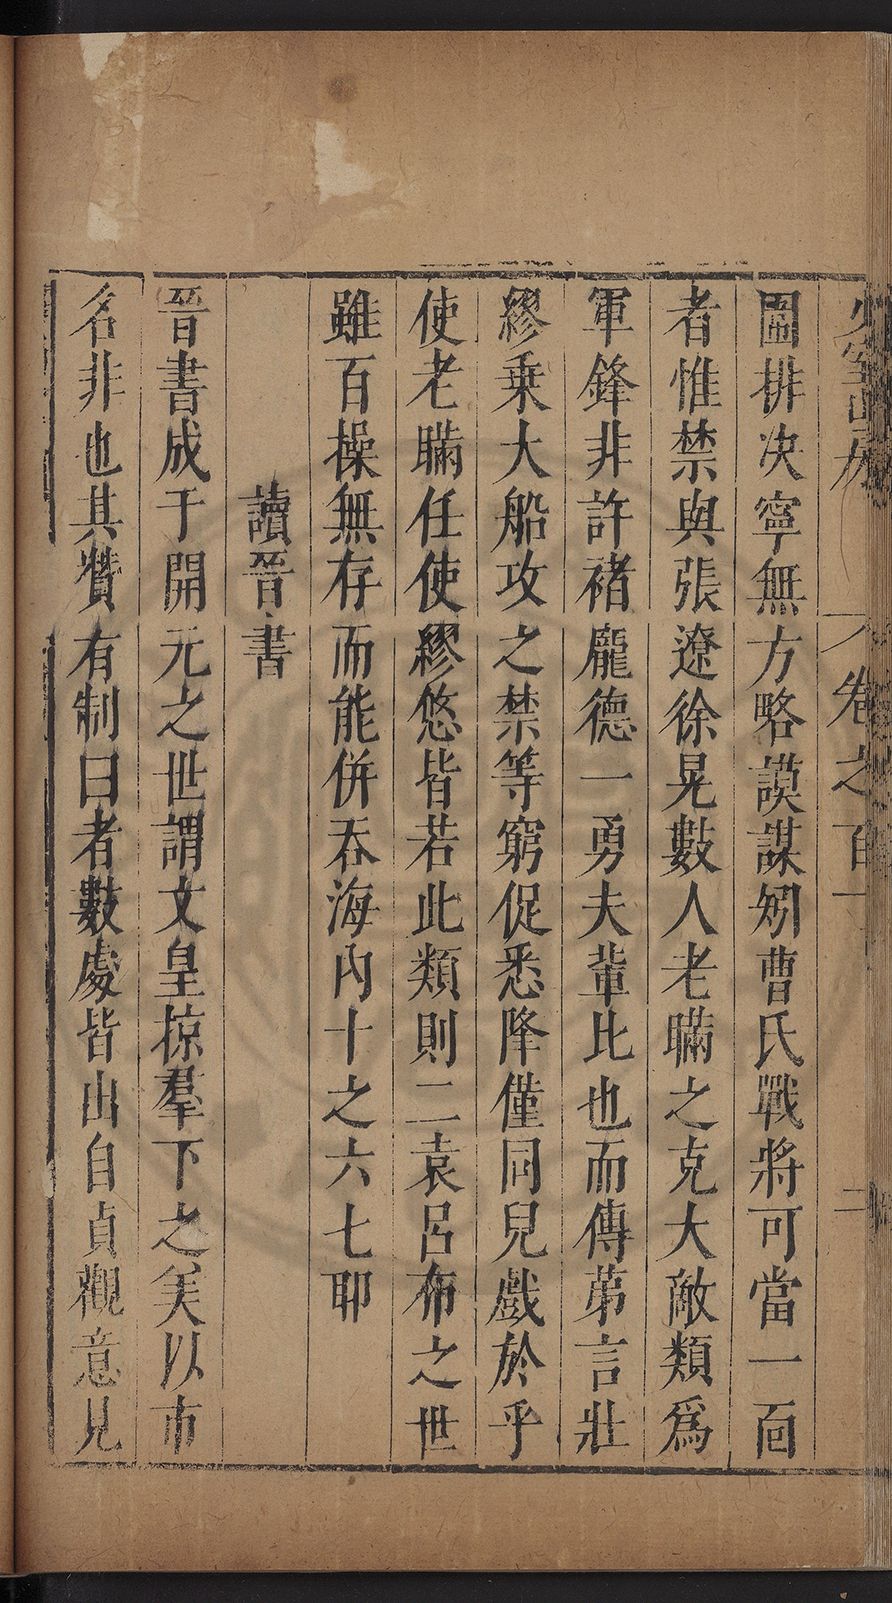 少室山房 卷之百一 二
圖排决寧無方略謨謀矧曹氏戰將可當一面
者惟禁與張遼徐晃數人老瞞之克大敵類爲
軍鋒非許褚龐德一勇夫輩比也而傳苐言壯
繆乗大船攻之禁等窮促悉降僅同兒戲於乎
使老瞞任使繆悠皆若此類則二袁呂布之世
雖百操無存而能併吞海内十之六七耶
讀晉書
晉書成于開元之世謂文皇掠羣下之美以市
名非也其贊有制曰者數處皆出自貞觀意見